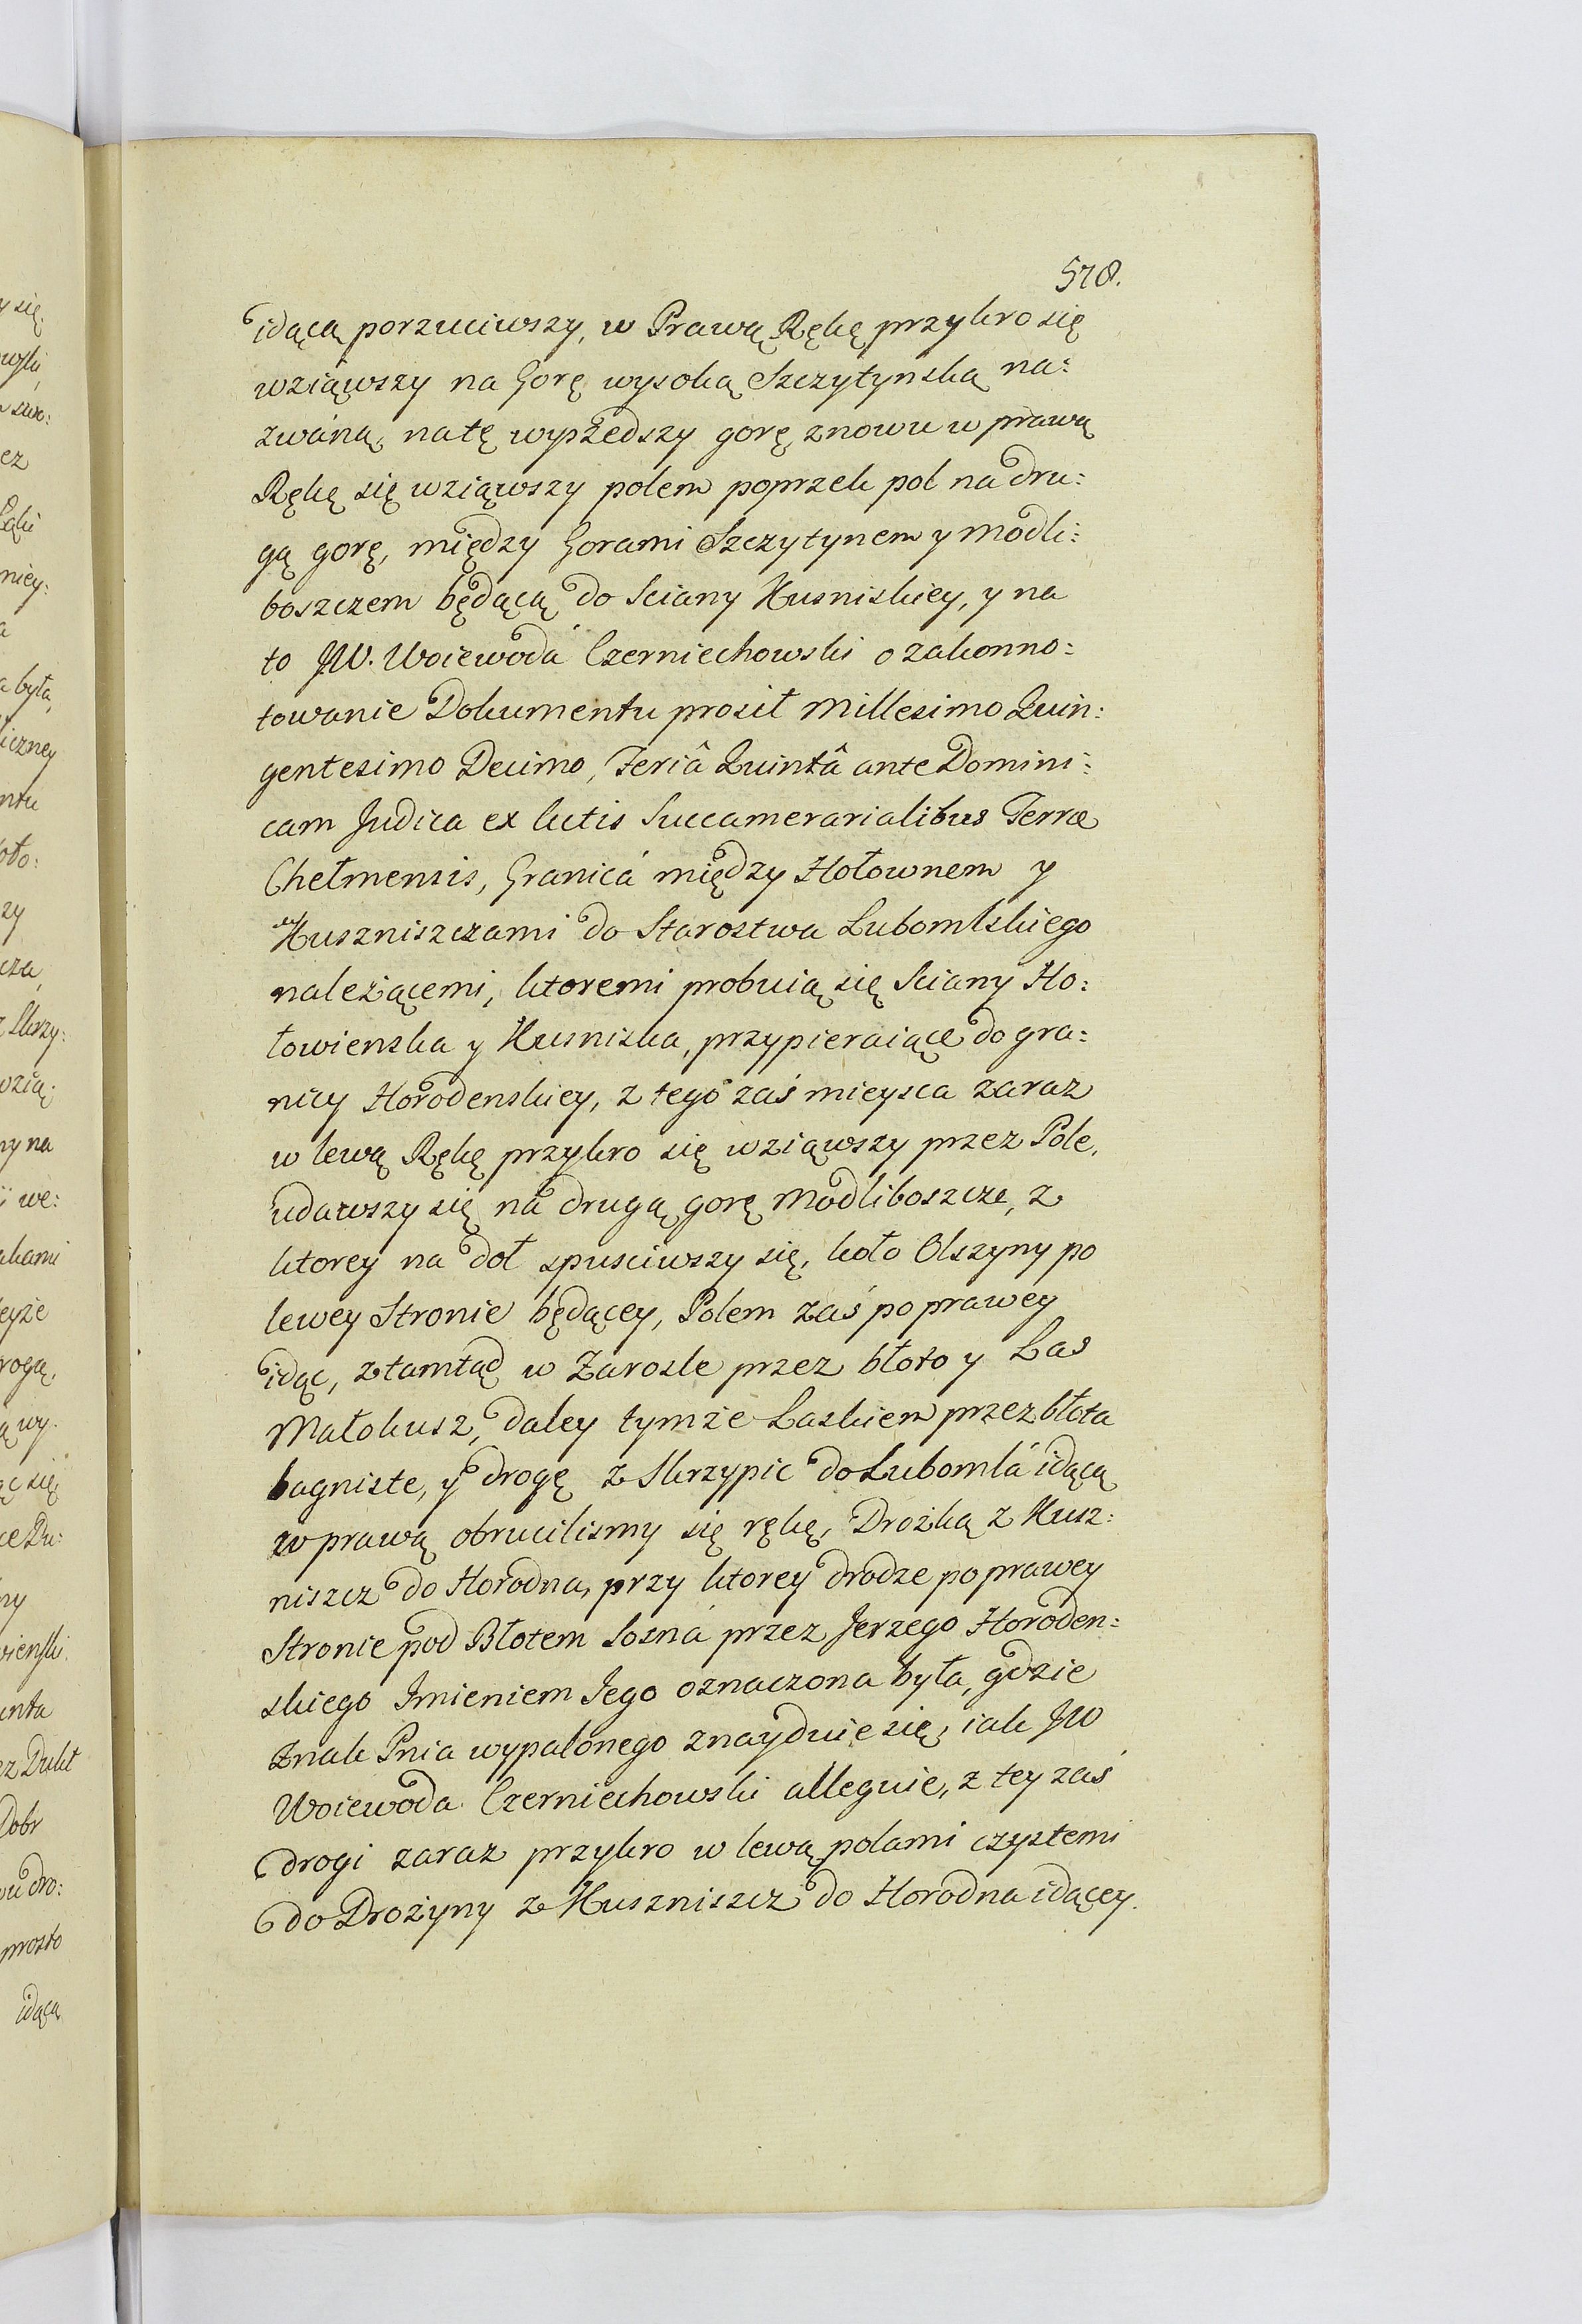 578.
idącą porzuciwszy, w Prawą Rękę przykro się
wziąwszy na Gorę wysoką Szczytynską na:
zwáną, natę wyszedszy gorę, znowu w prawą
Rękę się wziąwszy polem poprzek pol na dru:
gą gorę, między Gorami Szczytynem y Modli:
boszczem będącą do Sciany Kusniskiey, y na
to JW. Woiewodá Czerniechowski o zakonno:
towanie Dokumentu prosił Millesimo Quin:
gentesimo Decimo, Feriâ Quintâ ante Domini:
cam Judica ex Actis Succamerarialibus Terræ
Chełmensis, Granicá między Hołownem y
Kuszniszczami do Starostwa Lubomlskiego
należącemi, ktoremi probuią się Sciany Ho:
łowienska y Kusniska, przypieraiące do gra:
nicy Horodenskiey, z tego zaś mieysca zaraz
w lewą Rękę przykro się wziąwszy przez Pole,
udawszy się na drugą gorę Modliboszcze, z
ktorey na doł spusciwszy się, koło Olszyny po
lewey Stronie będącey, Polem zaś po prawey
idąc, ztamtąd w Zarosle przez błoto y Las
Małokusz, daley tymże Laskiem przez błota
bagniste, y drogę z Skrzypic do Lubomlá idącą
w prawą obrucilismy się rękę, Drożką z Kusz:
niszcz do Horodna, przy ktorey drodze po prawey
Stronie pod Błotem Sosná przez Jerzego Horoden:
skiego Jmieniem Jego oznaczona była, gdzie
Znak Pnia wypalonego znayduie się, iak JW
Woiewoda Czerniechowski alleguie, z tey zaś
drogi zaraz przykro w lewą polami czystemi
do Drożyny z Kuszniszcz do Horodna idącey.
y się.
ez
niey:
a
a była,
iczney
zy
cza,
ny na
we:
kami
eyże
rogą,
ą wy:
ąc się,
ny
enta
Dobr
prosto
idącą